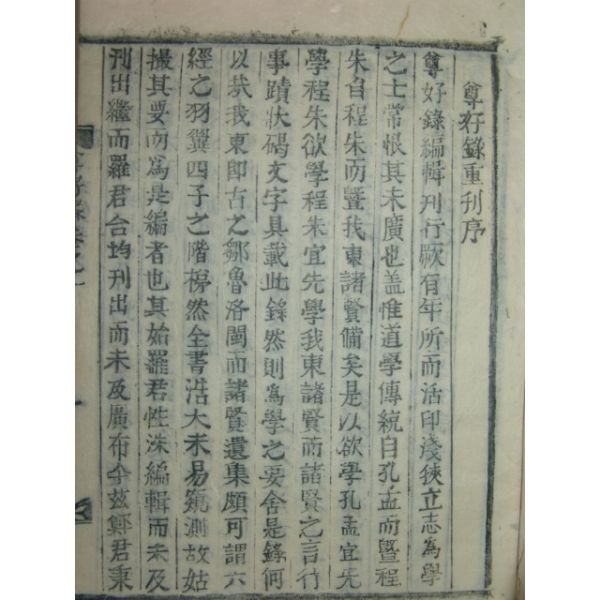 尊好錄重刊序
尊好錄編輯刊行厥有年所而活印淺狹立志為學
之士常恨其未廣也盖惟道學傳統自孔孟而曁程
朱自程朱而曁我東諸賢備矣是以欲學孔孟宜先
學程朱欲學程朱宜先學我東諸賢而諸賢之言行
事蹟狀碣文字具載此錄然則為學之要舍是錄何
以㢤我東即古之鄒魯洛閩而諸賢遺集頗可謂六
經之羽翼四子之階梯然全書浩大未易窺測故姑
撮其要而為是編者也其始羅君性洙編輯而未及
刊出繼而羅君台均刊出而未及廣布今玆鄭君秉